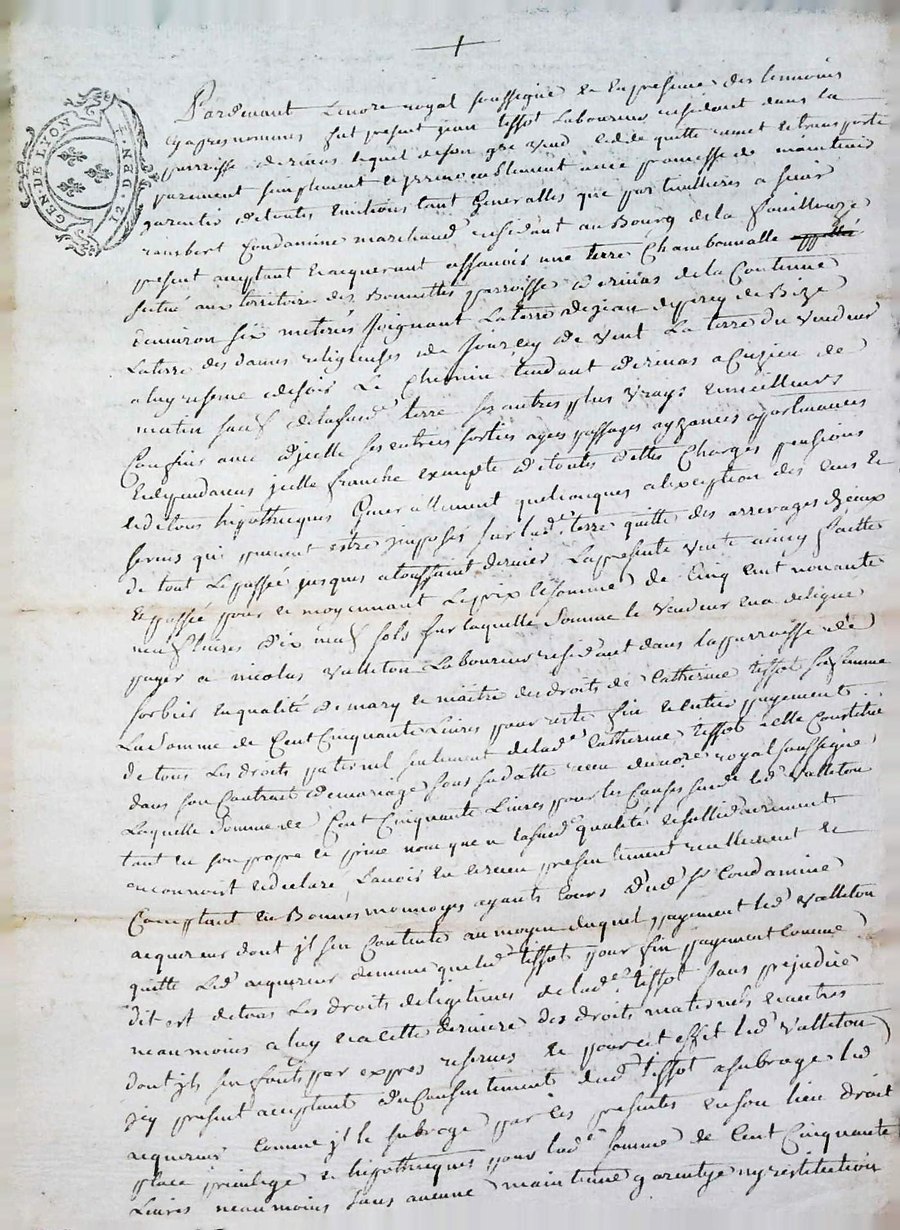 GEN. DE LYON
12 DEN
Pardevant Lenore royal soussigné et en presence des temoins
cy apres nommés fut present jean tissot Laboureur residant dans la
parroisse derivas lequel de son gré vend cedde quitte remet et transporte
purement simplement et jrrevocablement avec promesse de maintenir
garentir de toutes evictions tant Generalles que particulieres a sieur
rambert Condamine marchand residant au Bourg de la fouillouze
present acceptant et acquerant assavoir une terre Chambonnalle
scitué aux territoire des Bonnettes parroisse de rivas de la Contenue
denviron six meterés Joignant La terre de jean de
La terre des dames religieuses de Jourcey de vent La terre du vendeur
a luy reservé de soir Le Chemin tendant de rivas a Cuzieu de
matin sauf de la susd.e terre ses autres plus vrays et meilleurs
Confins avec d'jcelle ses entrées sorties ayes passages ayzances appartenances
et dependances jcelle franche exempte de toutes dettes Charges pensions
et de tous hipotheques Generallement quelconques a lexception des cens et
servis qui peuvent estre jmposés sur lad.e terre quitte des arrerages djceux
de tout Le passée jusques a toussaint dernier La presente vente ainsy faitte
et passée pour et moyennant Le prix et somme de Cinq Cent nonante
neuf livres dix neuf sols sur laquelle Somme le vendeur en a deligué
payer a nicolas valleton Laboureur residant dans la parroisse de
sorbiés en qualité de mary et maitre des droits de Catherine tissot sa femme
La somme de Cent Cinquante Livres pour reste fin et entier payement
de tous Les droits paternel seulement de lad.e Catherine tissot a elle Constitué
dans son Contrat de mariage sous sa datte receu du nore royal soussigné
Laquelle Somme de Cent Cinquante Livres pour les Causes susd.es led. valleton
tant en son propre et privé nom que a la susd.e qualité et sollidairement
reconnoist et declare L'avoir eu et receu presentement reellement et
Comptant en Bonnes monnoyes ayants Cours dud. sr Condamine
acquereur dont jl s'en Contente au moyen duquel payement led. valleton
quitte Led. acquereur de mme que led. tissot pour fin payement Comme
dit est de tous Les droits de legitimes de lad.e tissot sans prejudice
neaumoins a luy et a cette derniere des droits maternels et autres
dont jls se font par exprés reserves et pour cet effet led. valleton
jcy present acceptant du Consentement dud. tissot a subrogé led.
acquereur comme jl le subroge par ces presentes en son lieu droit
place privilege et hipotheques pour lad.e somme de Cent Cinquante
Livres neaumoins sans aucune maintenue garentye ny restitution